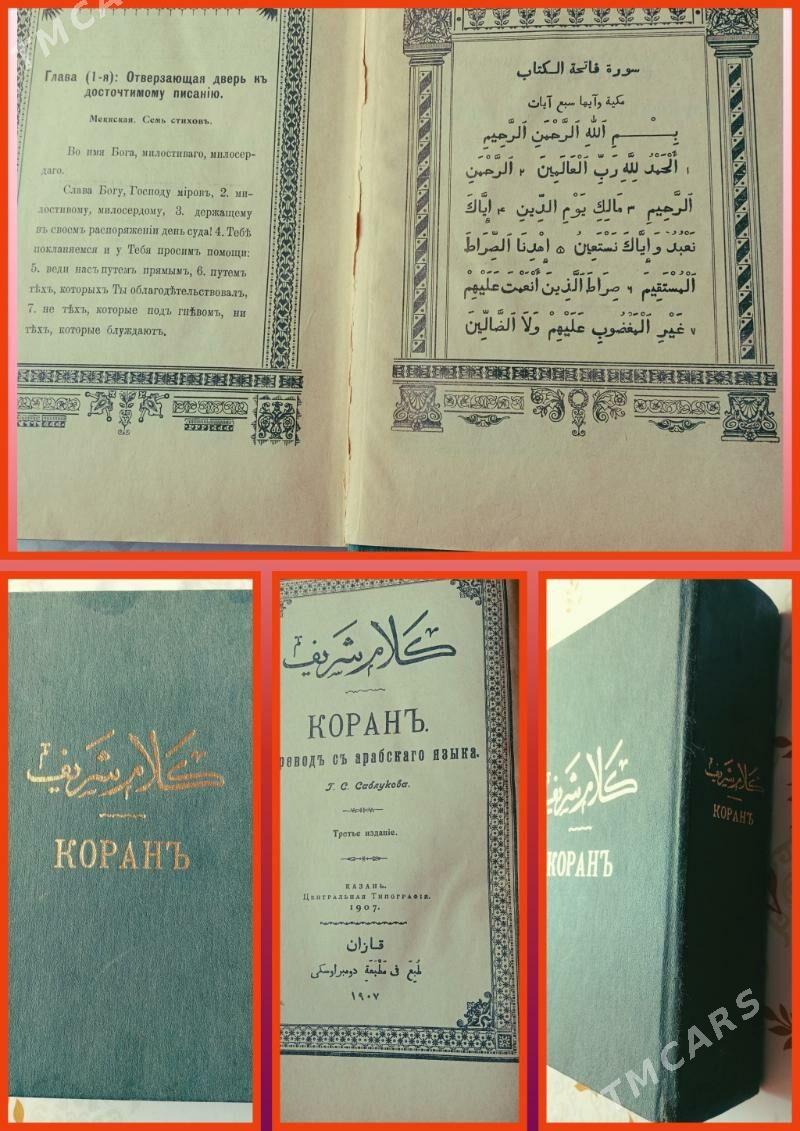 Глава (1-я): Отверзающая дверь къ
досточтимому писанію.
Мекиская. Семь стиховъ.
Во имя Бога, милостиваго, милосер-
даго.
Слава Богу, Господу міровъ, 2. ми-
лостивому, милосердому, 3. держащему
въ своемъ распоряженіи день суда! 4. Тебѣ
покланяемся и у Тебя просимъ помощи:
5. веди насъ путемъ прямымъ, 6. путемъ
тѣхъ, которыхъ Ты облагодѣтельствовалъ,
7. не тѣхъ, которые подъ гнѣвомъ, ни
тѣхъ, которые блуждаютъ.
سورة فاتحة الكتاب
مكية وآيها سبع آيات
بِسْمِ اللهِ الرَّحْمَنِ الرَّحِيمِ
١ اَلْحَمْدُ لِلَّهِ رَبِّ الْعَالَمِينَ ٢ اَلرَّحْمَنِ
الرَّحِيمِ ٣ مَالِكِ يَوْمِ الدِّينِ ٤ إِيَّاكَ
نَعْبُدُ وَإِيَّاكَ نَسْتَعِينُ ٥ اِهْدِنَا الصِّرَاطَ
الْمُسْتَقِيمَ ٦ صِرَاطَ الَّذِينَ أَنْعَمْتَ عَلَيْهِمْ
٧ غَيْرِ الْمَغْضُوبِ عَلَيْهِمْ وَلَا الضَّالِّينَ
كلام شريف
КОРАНЪ
كلام شريف
КОРАНЪ.
реводъ съ арабскаго языка.
Г. С. Саблукова.
Третье изданіе.
КАЗАНЬ.
Центральная Типографія.
1907.
قازان
طُبِعَ فى مَطْبَعَةِ دومبراوسكى
١٩٠٧
كلام شريف
КОРАНЪ
كلام شريف
КОРАНЪ
TMCARS
TMCARS